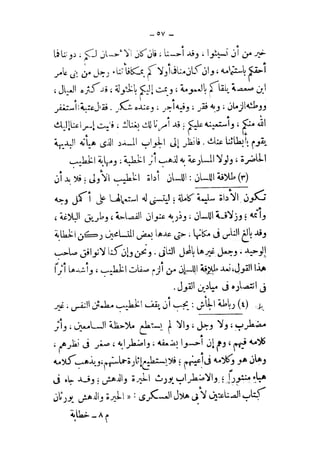 — ٥٧ —
خير من أن تسيئوا ، وقد أحسنا ، فإن كان الإحسان لكم ، دوننا فما
أحقكم باستتمامه ، وإن كان منا فما أولاكم بمكافأتنا، رجل من بني عامر
ابن صعصعة يلقاكم بالعمومة ، ويمت إليكم بالخئولة ، قد كثره العيال ،
ووطئه الزمان ، وبه فقر ، وفيه أجر ، وعنده شكر . فقال عتبة: أستغفر
الله منكم ، وأستعينه عليكم ؛ قد أمرنا لك بغناك ، فليت إسراعنا إليك
يقوم بإبطائنا عنك . فانظر إلى الجواب المسدد الذى هيأته البديهة
الحاضرة ، ولولا المسارعة به لذهب أثر الخطبة ، ومهابة الخطيب
(٣) طلاقة اللسان : اللسان أداة الخطيب الأولى ؛ فلا بد أن
تكون الأداة سليمة كاملة ؛ ليتسنى له استعمالها على أكمل وجه
وأتمه ؛ وزلاقة اللسان ، وذربه عنوان الفصاحة ، وطريق البلاغة ،
وقد بالغ الناس فى مكانتها ، حتى عدها بعض المتسامحين ركن الخطابة
الوحيد . وجعل غيرها بالمحل الثانى . ونحن وإن كنا لا نوافق صاحب
هذا القول، نعد طلاقة اللسان من ألزم صفات الخطيب ، وأشدها أثراً
فى انتصاره فى ميادين القول .
(٤) رباطة الجأش : يجب أن يقف الخطيب مطمئن النفس . غير
مضطرب ، ولا وجل ، وإلا لم يستطع ملاحظة السامعين ، وأثر
كلامه فيهم ، وهم إن أحسوا بضعفه ، واضطرابه ، صغر فى نظرهم ،
وهان هو وكلامه فى أعينهم ؛ فلا يستطيع إثارة حماستهم، ويذهب كلامه
هباء منثوراً ؛ والاضطراب يورث الحيرة والدهش ؛ وقد جاء فى
كتاب الصناعتين لأبى هلال العسكرى : « الحيرة والدهش يورثان
م ٨ — خطابة